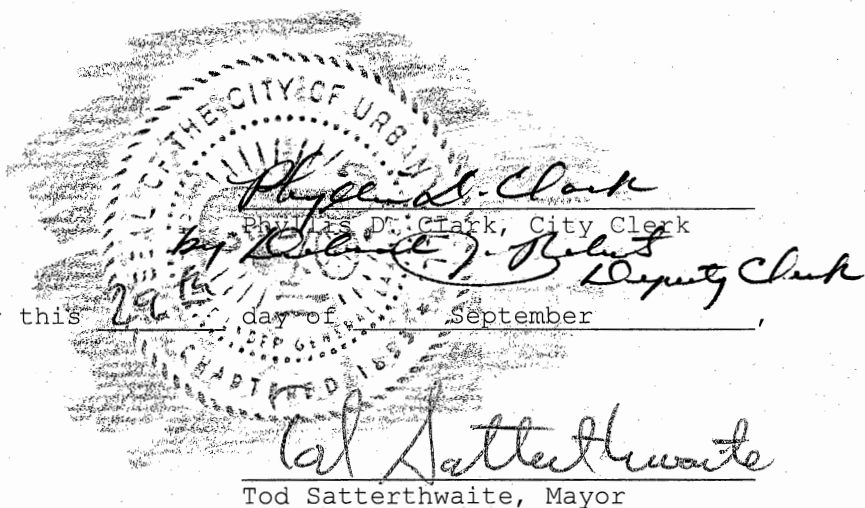 OF THE CITY OF URBAN
UNDER GENERAL LA
CHARTERED 1855
Phyllis D. Clark
Phyllis D. Clark, City Clerk
by J. Roberts
Deputy Clerk
this 29th day of September,
Tod Satterthwaite
Tod Satterthwaite, Mayor